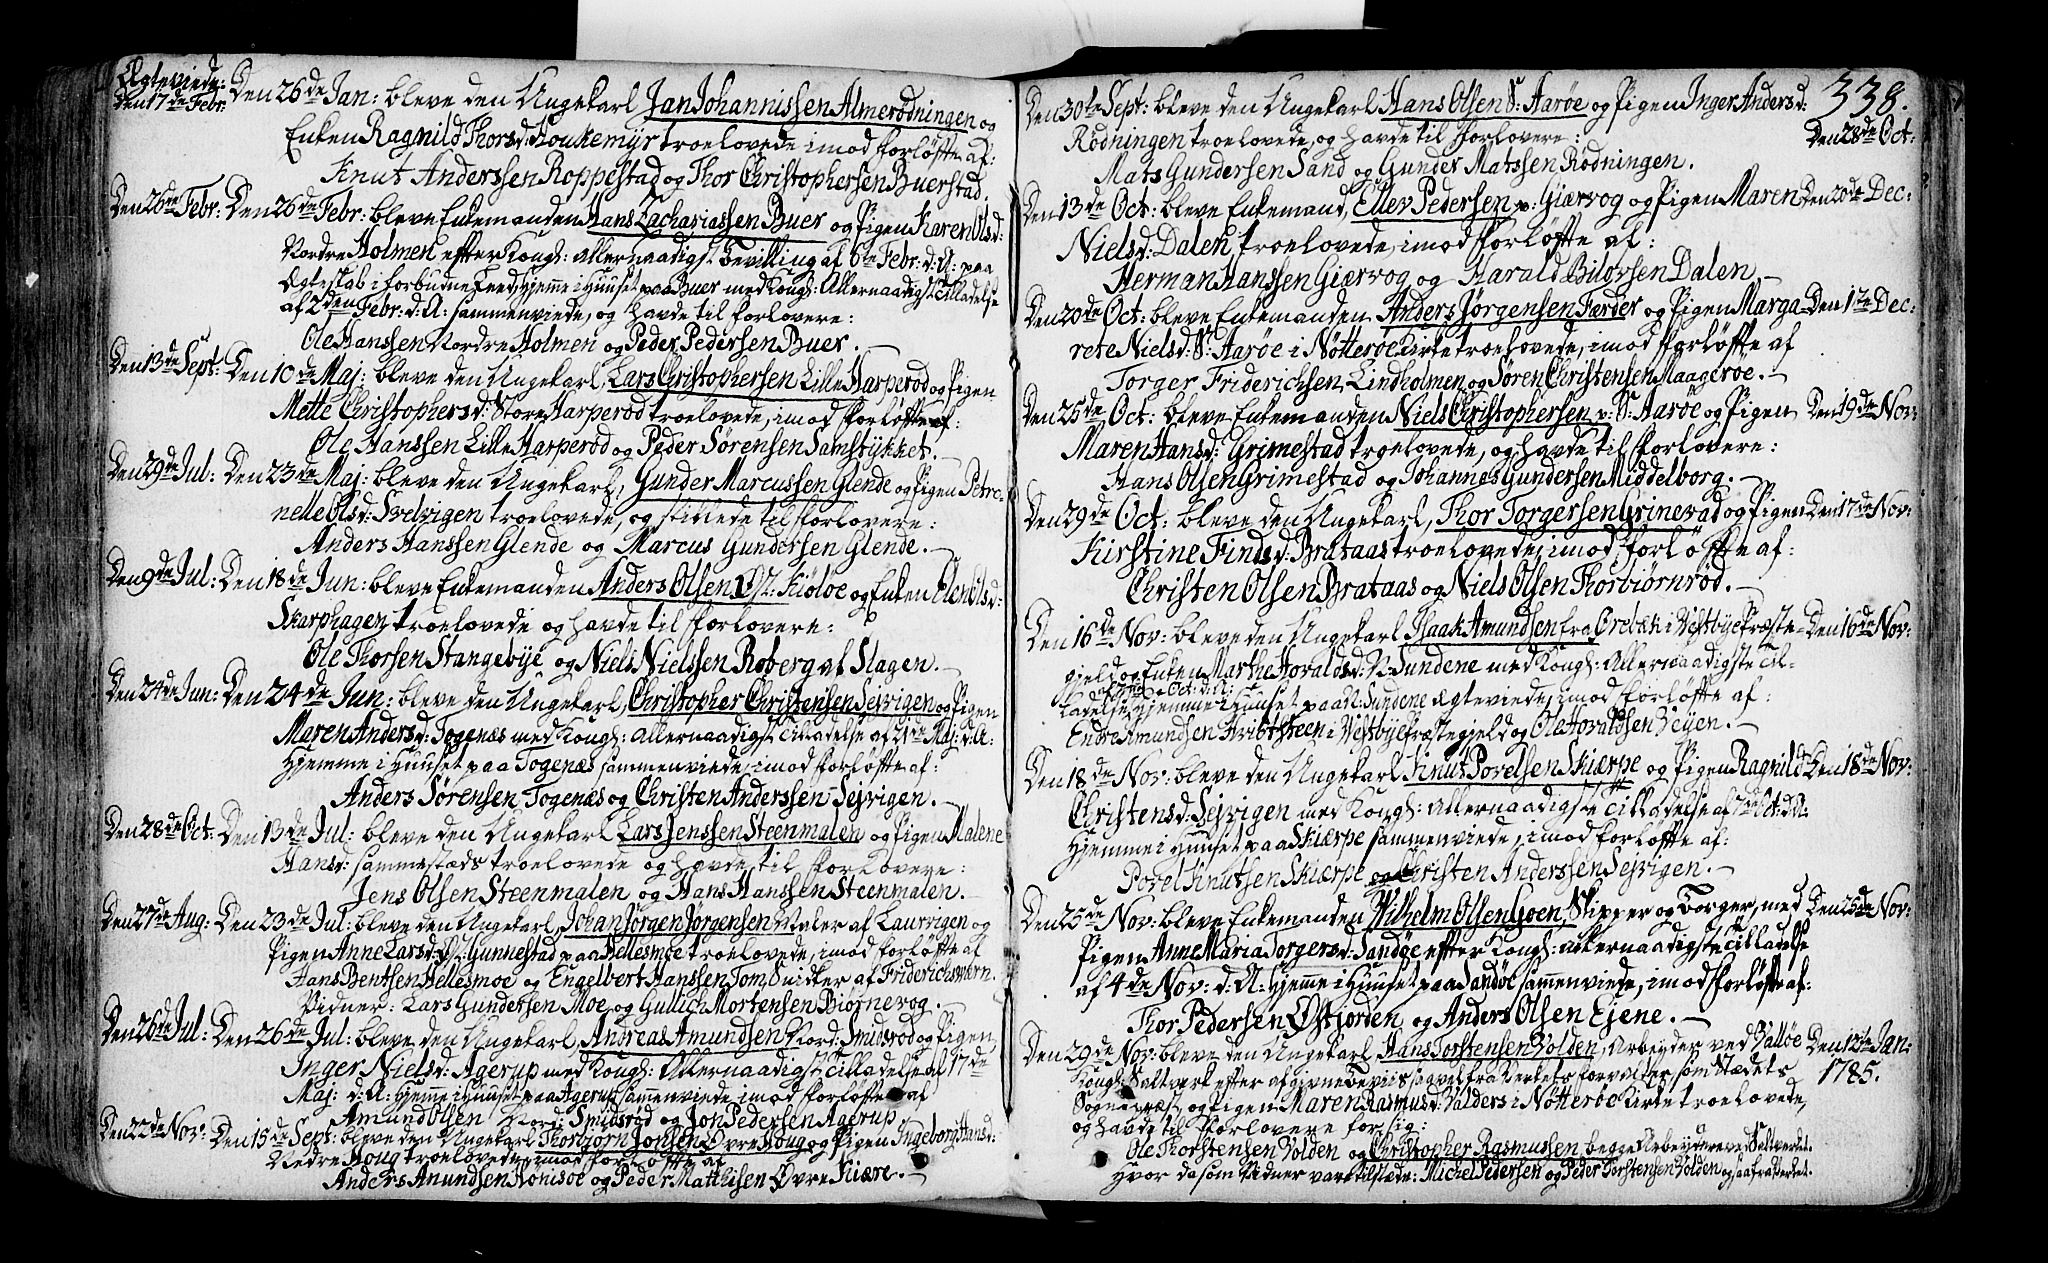 Ægteviede:
Den 17de Febr: Den 26de Jan: bleve den Ungekarl Jan Johannissen Almerødningen og
Enken Ragnild Thorsd: Houkemyr troelovede imod Forløfte af:
Knut Anderssen Roppestad og Thor Christophersen Buerstad.
Den 26de Febr: Den 26de Febr: bleve Enkemanden Hans Zachariassen Buer og Pigen Karen Olsd:
Nordre Holmen efter Kongl: allernaadigst Bevilling af 6te Febr: d: A: paa
Ægteskab i forbudne Leed, hjemme i Huuset paa Buer med Kongl: Allernaadigst Tilladelse
af 2den Febr: d: A: sammenviede, og havde til Forlovere:
Ole Hanssen Nordre Holmen og Peder Pedersen Buer.
Den 13de Sept: Den 10de Maj: bleve den Ungekarl, Lars Christophersen Lille Harperød og Pigen
Mette Christophersd: Store Harperød troelovede, imod Forløfte af:
Ole Hanssen Lille Harperød og Peder Sørensen Samstykket.
Den 29de Jul: Den 23de Maj: bleve den Ungekarl, Gunder Marcussen Glende og Pigen Petro-
nelle Olsd: Svelvigen troelovede, og stillede til Forlovere:
Anders Hanssen Glende og Marcus Gundersen Glende.
Den 9de Jul: Den 18de Jun: bleve Enkemanden Anders Olsen Kiøløe og Enken Elen Olsd:
Skarphagen troelovede og havde til Forlovere:
Ole Thorsen Stangebye og Niels Nielssen Roberg af Slagen.
Den 24de Jun: Den 24de Jun: bleve den Ungekarl, Christopher Christensen Sejvigen og Pigen
Maren Andersd: Togenæs med Kongl: allernaadigst Tilladelse af 21de Maj: d: A:
hjemme i Huuset paa Togenæs sammenviede, imod Forløfte af:
Anders Sørensen Togenæs og Christen Anderssen Sejvigen.
Den 28de Oct: Den 13de Jul: bleve den Ungekarl Lars Jenssen Steenmalen og Pigen Malene
Hansd: sammestæds troelovede og havde til Forlovere:
Jens Olsen Steenmalen og Hans Hanssen Steenmalen.
Den 27de Aug: Den 23de Jul: bleve den Ungekarl, Johan Jørgen Jørgensen Maler af Laurvigen og
Pigen Anne Larsd: Gunnestad paa Hellesmoe troelovede, imod Forløfte af
Hans Bentsen Hellesmoe og Engelbert Hanssen Tom, Snidker af Friderichsværn.
Vidner: Lars Gundersen Moe og Gullich Mortensen Biørnevog.
Den 26de Jul: Den 26de Jul: bleve den Ungekarl, Andreas Amundsen Nord: Smidsrød og Pigen,
Inger Nielsd: Agerup med Kongl: Allernaadigst Tilladelse af 17de
Maj: d: A: hjemme i Huuset paa Agerup sammenviede imod Forløfte af
Amund Olsen Nord: Smidsrød og Jon Pedersen Agerup
Den 22de Nov: Den 15de Sept: bleve den Ungekarl Thorbjørn Jonsen Øvre Houg og Pigen Ingeborg Hansd:
Nedre Houg troelovede, imod Forløfte af
Anders Anundsen Honisøe og Peder Matthisen Øvre Kiære.
338.
Den 30te Sept: bleve den Ungekarl Hans Olsen S: Aarøe og Pigen Inger Andersd:
Rødningen troelovede, og havde til Forlovere: Den 28de Oct:
Mats Gundersen Sand og Gunder Matssen Rødningen.
Den 13de Oct: bleve Enkemand, Ellev Pedersen p: Giærvog og Pigen Maren Den 20de Dec:
Nielsd: Dalen troelovede, imod Forløfte af:
Herman Hanssen Giærvog og Harald Biløvsen Dalen
Den 20de Oct: bleve Enkemanden Anders Jørgensen Færder og Pigen Marga- Den 1te Dec:
rete Nielsd: S: Aarøe i Nøtterøe Kirke troelovede, imod Forløfte af
Torger Friderichsen Lindholmen og Søren Christensen Maagerøe.
Den 25de Oct: bleve Enkemanden Niels Christophersen p: S: Aarøe og Pigen Den 19de Nov:
Maren Hansd: Grimestad troelovede, og havde til Forlovere:
Hans Olsen Grimestad og Johannes Gundersen Middelborg.
Den 29de Oct: bleve den Ungekarl, Thor Torgersen Grinevad og Pigen Den 17de Nov:
Kirstine Findsd: Brataas troelovede, imod Forløfte af:
Christen Olsen Brataas og Niels Olsen Thorbiørnrød.
Den 16de Nov: bleve den Ungekarl Isaak Amundsen fra Ørebæk i Vestbye Præste- Den 16de Nov:
gield og Enken Marthe Hovaldsd: N: Sundene med Kongl: Allernaadigste Til-
ladelse, hjemme i Huuset paa N: Sundene ægteviede, imod Forløfte af:
Endre Amundsen Hvitsteen i Vestbye Præstegield og Ole Hovaldsen Vejen.
Den 18de Nov: bleve den Ungekarl Knut Povelsen Skiærpe og Pigen Ragnild Den 18de Nov:
Christensd: Sejvigen med Kongl: allernaadigste Tilladelse af 7de Oct: d: A:
hjemme i Huuset paa Skiærpe sammenviede, imod Forløfte af:
Povel Knutsen Skiærpe og Christen Anderssen Sejvigen.
Den 25de Nov: bleve Enkemanden Wilhelm Olsen Goen, Skipper og Borger, med Den 25de Nov:
Pigen Anne Maria Torgersd: Sandøe efter Kongl: allernaadigste Tilladelse
af 4de Nov: d: A: hjemme i Huuset paa Sandøe sammenviede, imod Forløfte af:
Thor Pedersen Østjorden og Anders Olsen Ejene.
Den 29de Nov: bleve den Ungekarl Hans Torstensen Volden, Arbejder ved Valløe Den 12te Jan:
Kongl: Saltverk efter afgivne Beviis saavel fra Verkets Forvalter som Stædets 1785.
Sognepræst, og Pigen Maren Rasmusd: Valders i Nøtterøe Kirke troelovede,
og havde til Forlovere for sig:
Ole Thorstensen Volden og Christopher Rasmussen begge Arbejdere ved Saltverket.
Hvor da som Vidner vare tilstæde: Michel Pedersen og Peder Torstensen Volden ogsaa fra Verket.